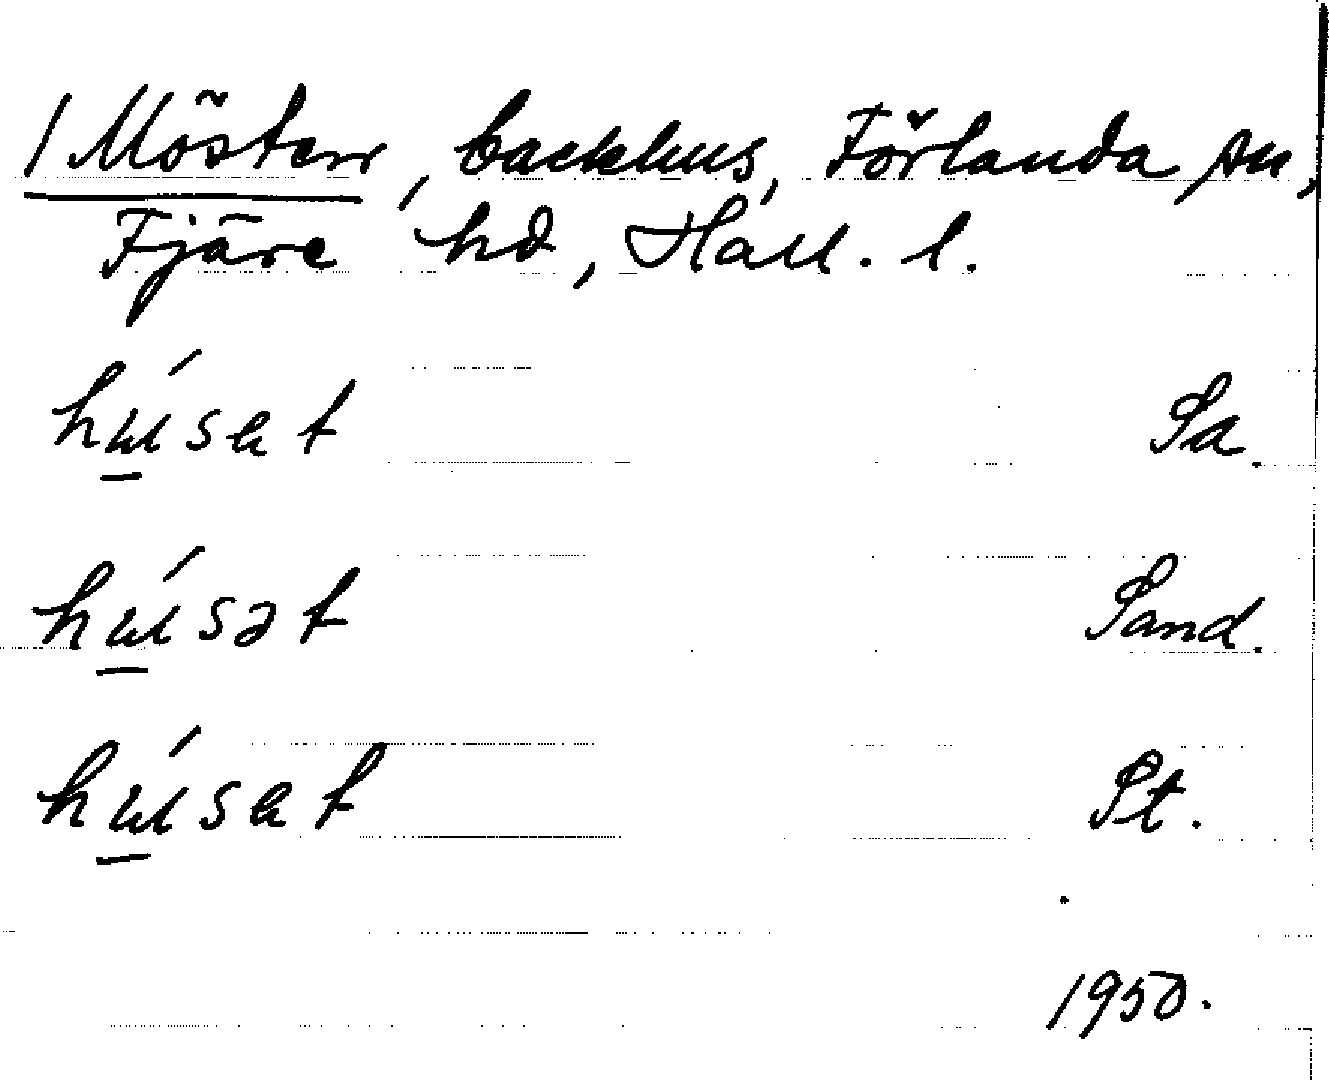 / Möster, backhus, Förlanda sn,
Fjäre hd, Hall. l.
húsat Sa.
húsət Sand.
húsat St.
1950.